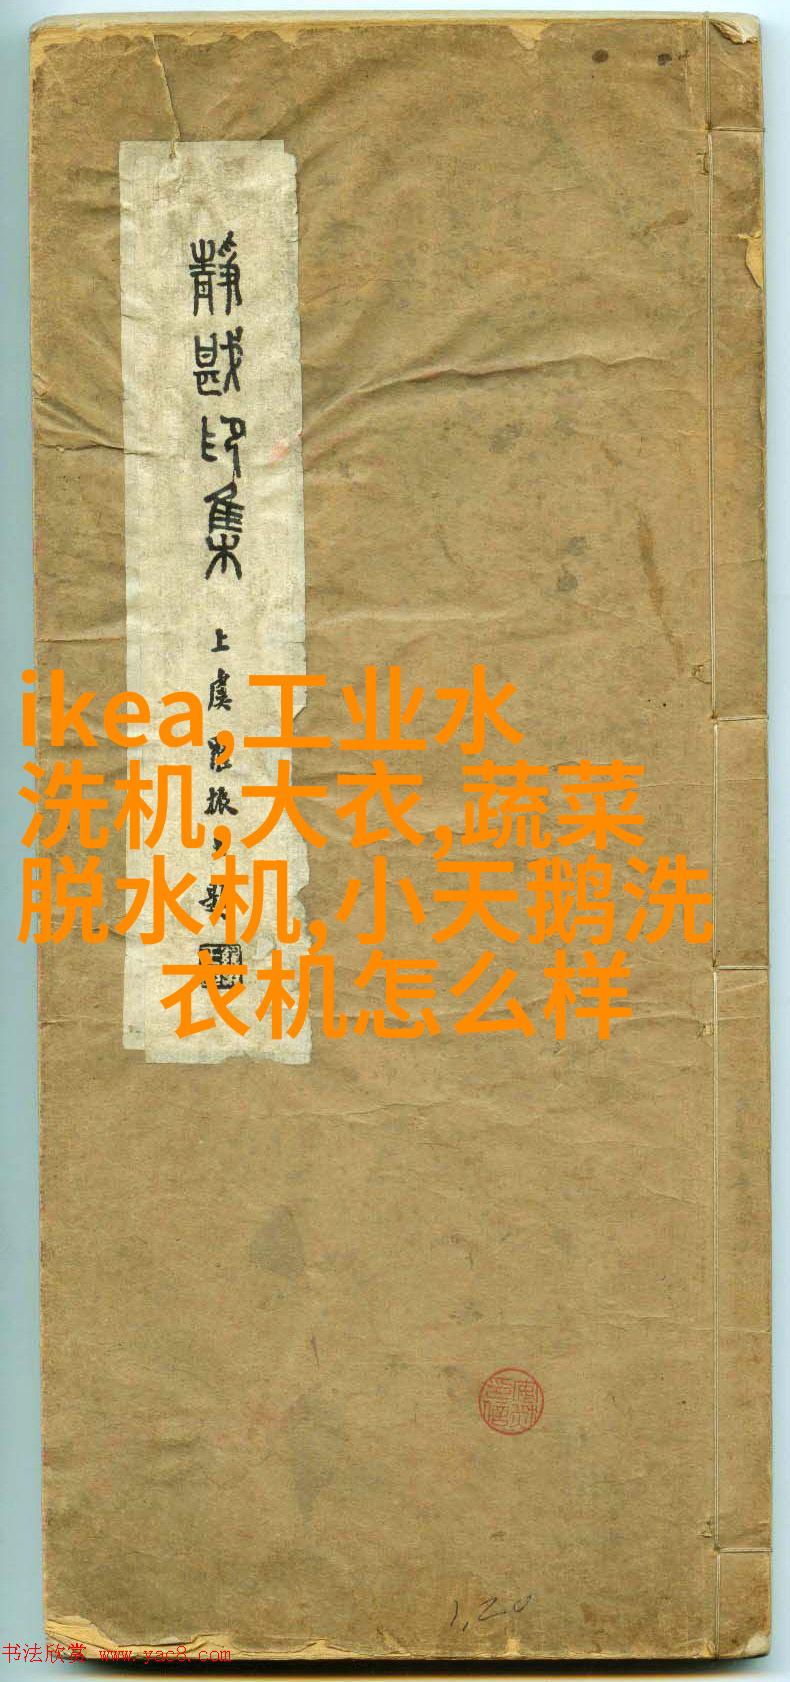 靜戡印集
上虞
振
題
ikea,工业水
洗机,大衣,蔬菜
脱水机,小天鹅洗
衣机怎么样
1,20
书法欣赏 www.yac8.com